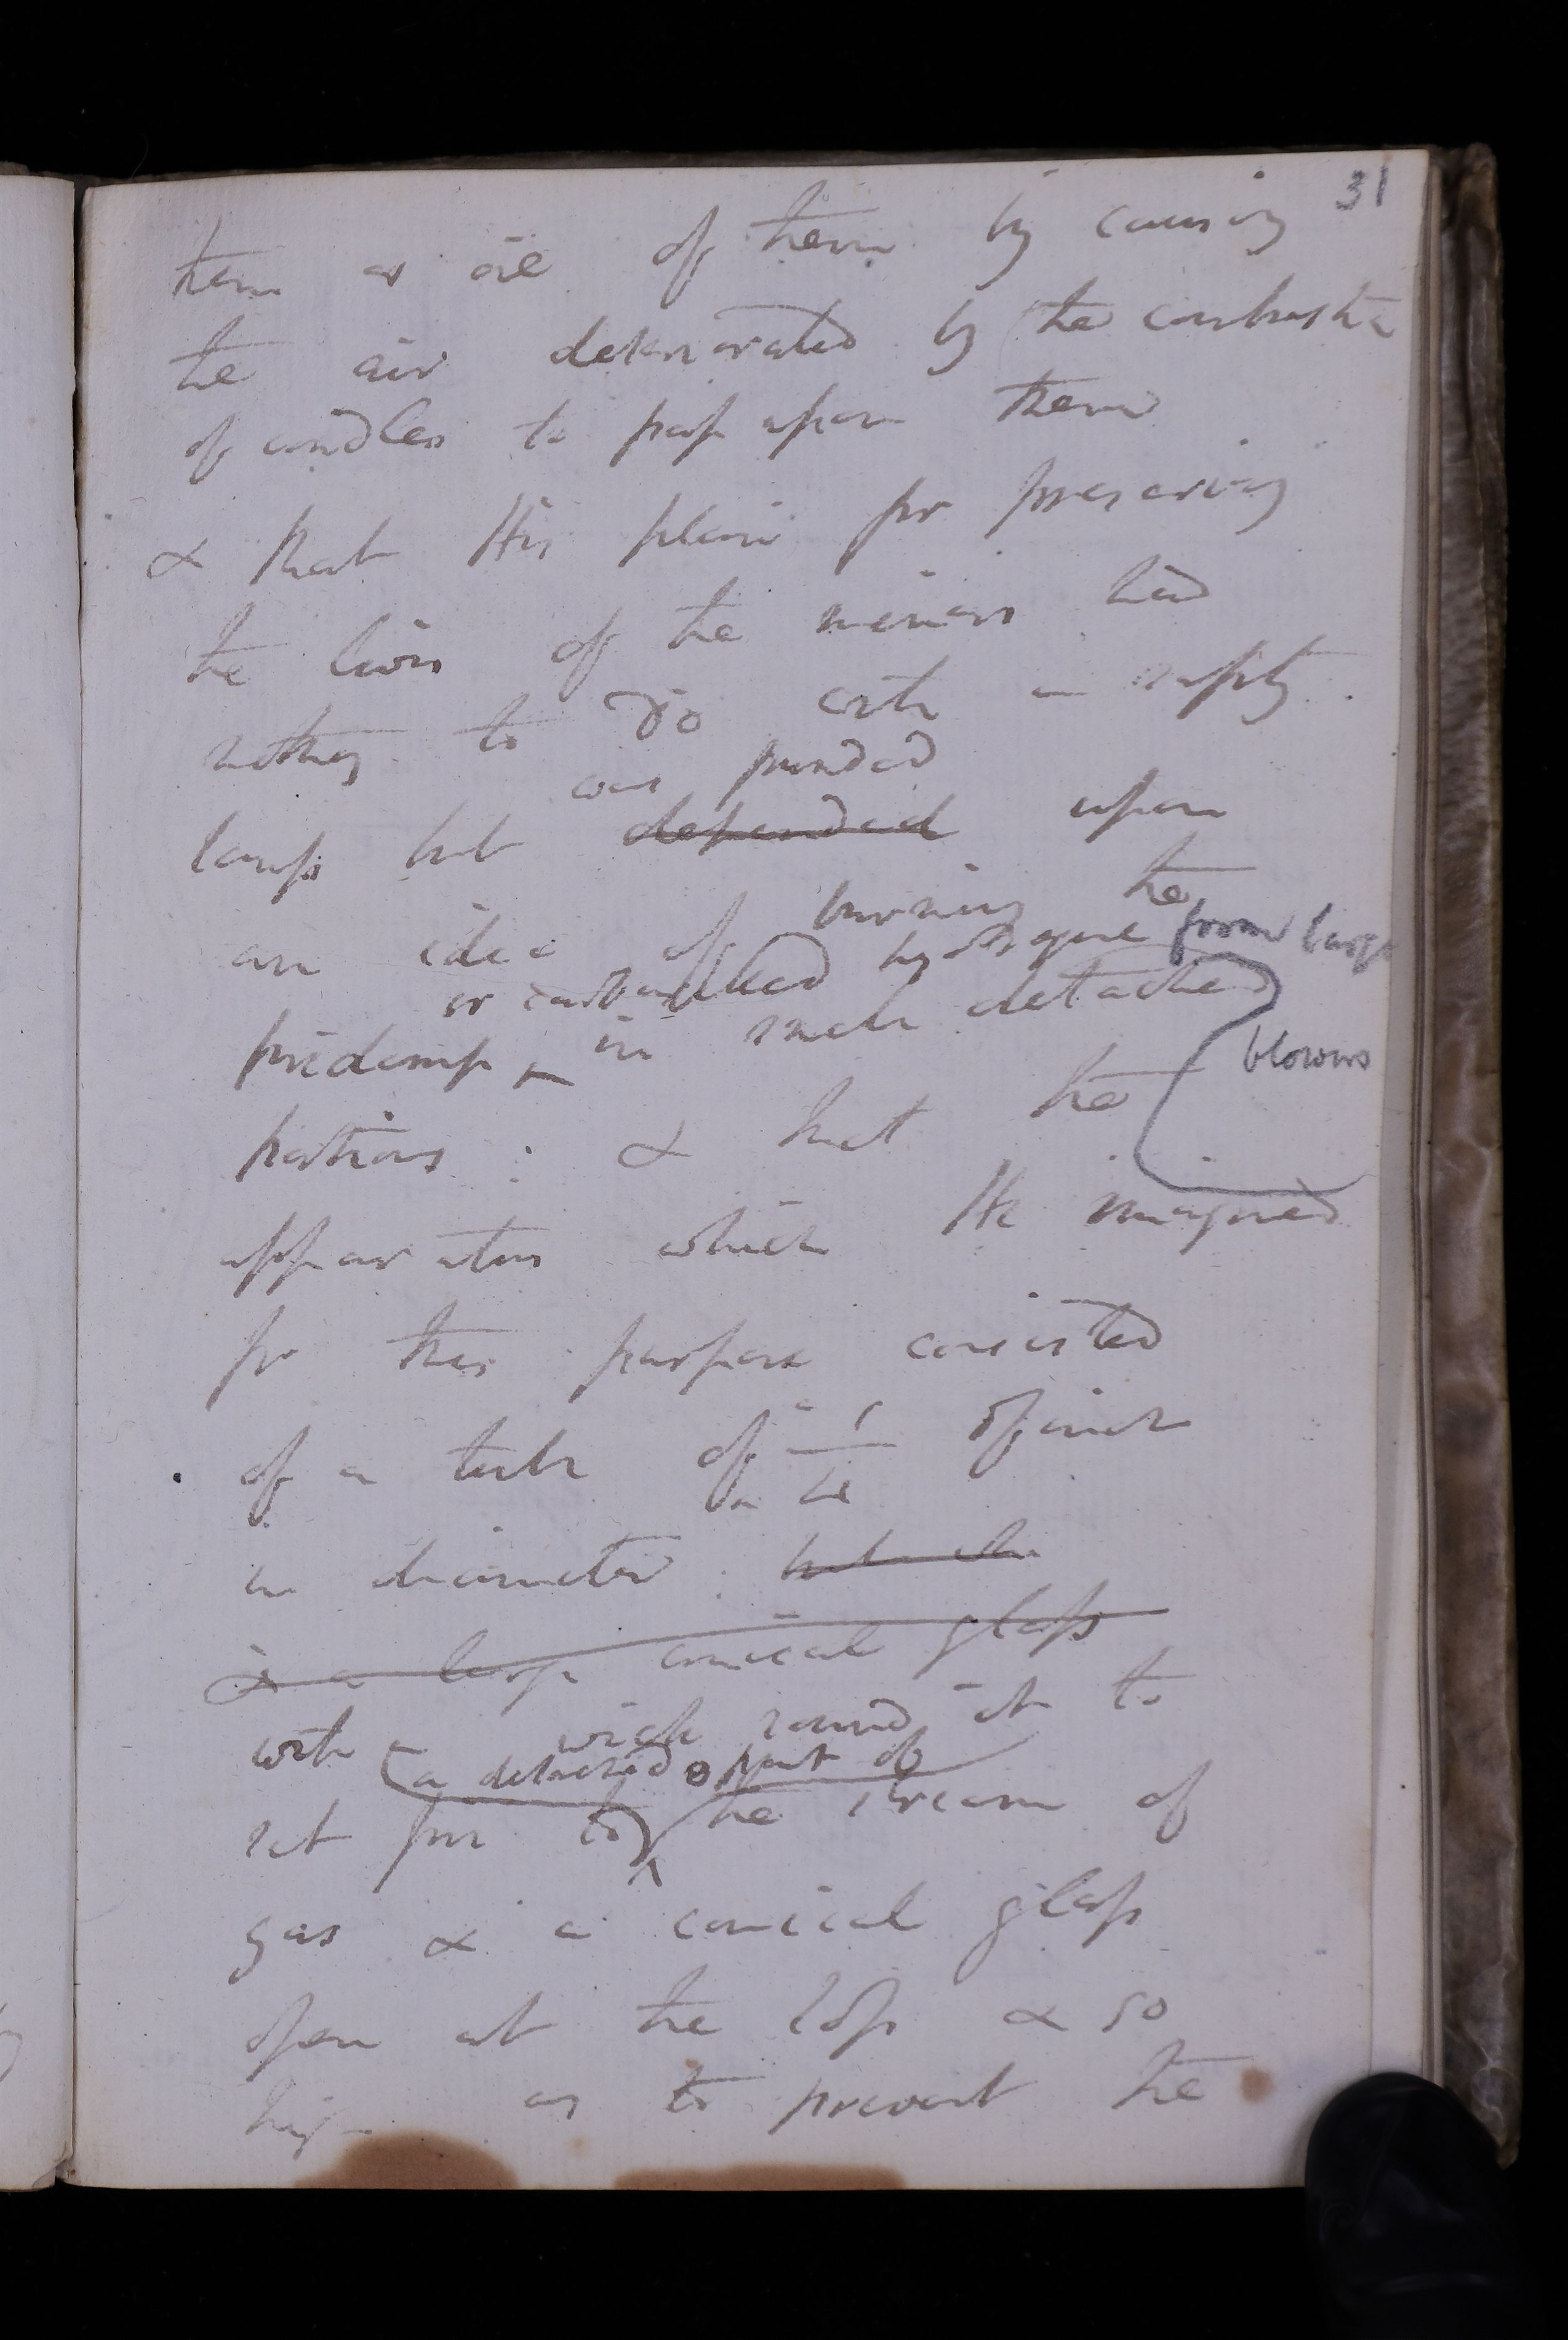 31
them or one of them by causing
the air deteriorated by the combustn
of candles to pass upon them
& that His plan for preserving
the lives of the miners had
nothing to do with a safety
was founded
lamp but depended upon
an idea of burning the
or carburetted hydrogene from large
firedamp in such detached
blowers
portions : & that the
apparatus which He imagined
for this purpose consisted
of a tube of a 1/10 of inch
in diameter
& a large conical glass
with a wick round it to
a detached part of
set fire to the stream of
gas & a conical glass
open at the top & so
high as to prevent the